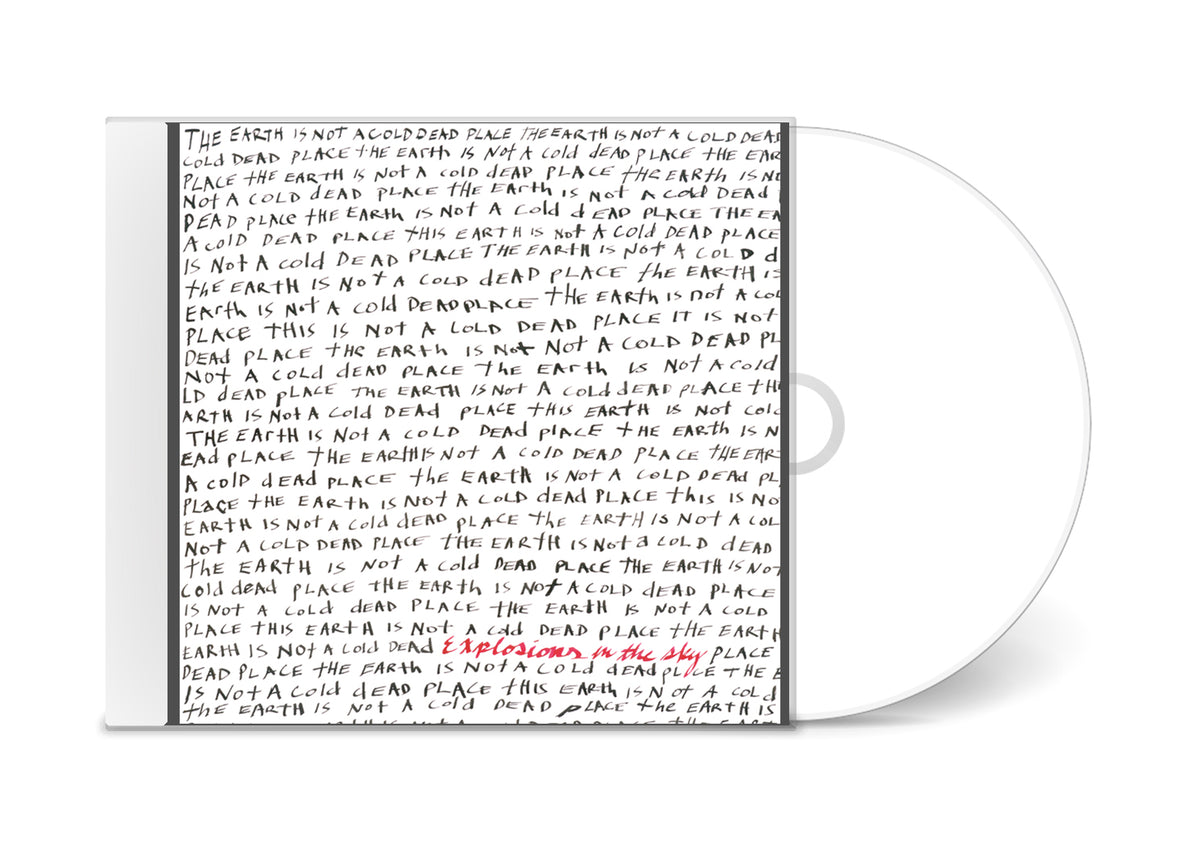 THE EARTH IS NOT A COLD DEAD PLACE THE EARTH IS NOT A COLD DEAD
COLD DEAD PLACE THE EARTH IS NOT A COLD DEAD PLACE THE EAR
PLACE THE EARTH IS NOT A COLD DEAD PLACE THE EARTH IS NO
NOT A COLD DEAD PLACE THE EARTH IS NOT A COLD DEAD
DEAD PLACE THE EARTH IS NOT A COLD DEAD PLACE THE EA
A COLD DEAD PLACE THIS EARTH IS NOT A COLD DEAD PLACE
IS NOT A COLD DEAD PLACE THE EARTH IS NOT A COLD d
the EARTH IS NOT A COLD DEAD PLACE the EARTH IS
EARTH IS NOT A COLD DEAD PLACE THE EARTH IS NOT A COL
PLACE THIS IS NOT A COLD DEAD PLACE IT IS NOT
DEAD PLACE THE EARTH IS NOT NOT A COLD DEAD PL
NOT A COLD DEAD PLACE THE EARTH IS NOT A COLD
LD DEAD PLACE THE EARTH IS NOT A COLD DEAD PLACE TH
ARTH IS NOT A COLD DEAD PLACE THIS EARTH IS NOT COLD
THE EARTH IS NOT A COLD DEAD PLACE THE EARTH IS N
EAD PLACE THE EARTH IS NOT A COLD DEAD PLACE THE EAR
A COLD DEAD PLACE the EARTH IS NOT A COLD DEAD PL
PLACE THE EARTH IS NOT A COLD DEAD PLACE this IS NO
EARTH IS NOT A COLD DEAD PLACE the EARTH IS NOT A COL
NOT A COLD DEAD PLACE THE EARTH IS NOT A COLD DEAD
the EARTH IS NOT A COLD DEAD PLACE THE EARTH IS NOT
COLD DEAD PLACE THE EARTH IS NOT A COLD DEAD PLACE
IS NOT A COLD DEAD PLACE THE EARTH IS NOT A COLD
PLACE THIS EARTH IS NOT A COLD DEAD PLACE THE EARTH
EARTH IS NOT A COLD DEAD Explosions in the sky PLACE
DEAD PLACE THE EARTH IS NOT A COLD DEAD PLACE THE E
IS NOT A COLD DEAD PLACE THIS EARTH IS NOT A COLD
the EARTH IS NOT A COLD DEAD PLACE the EARTH IS